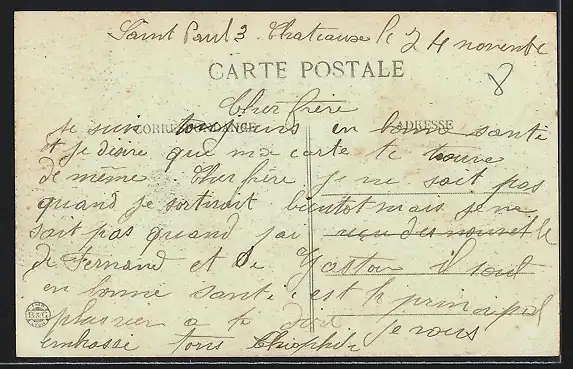 Saint Paul 3 Chateaux le 24 novembre
CARTE POSTALE
8
Cher frère
CORRESPONDANCE
ADRESSE
Je suis toujours en bonne santé
et je désire que ma carte te trouve
de même. Cher frère je ne sait pas
quand je sortirait bientot mais je ne
sait pas quand j'ai reçu des nouvelle
de Fernand et de Gaston il sont
en bonne santé, est le principal
plus rien a te dire je vous
embrasse tous Théophile
B&G